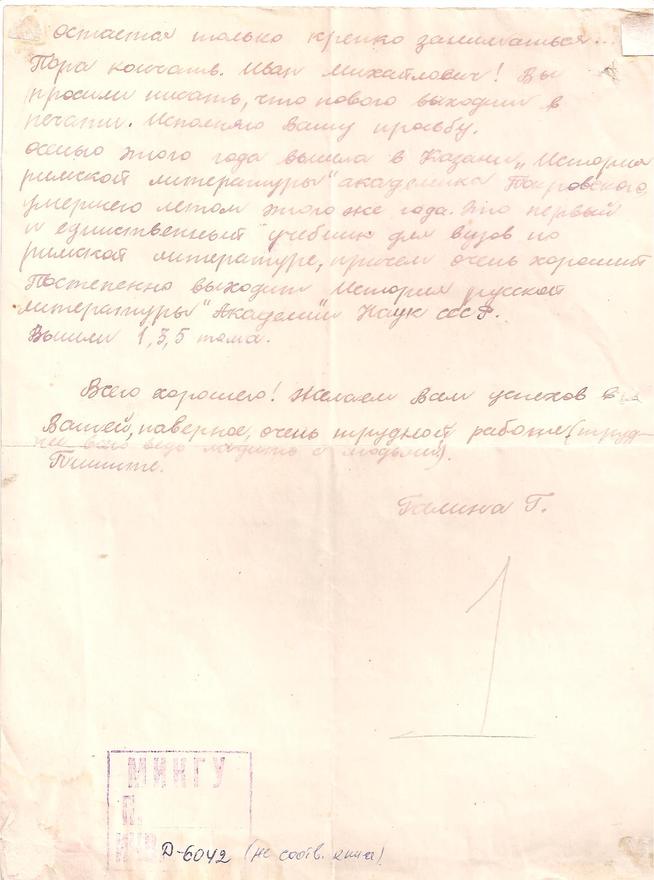 остается только крепко заниматься...
Пора кончать. Иван Михайлович! Вы
просили писать, что нового выходит в
печати. Исполняю Вашу просьбу.
Осенью этого года вышла в Казани „История
римской литературы" академика Покровского,
умершего летом этого же года. Это первый
и единственный учебник для вузов по
римской литературе, причем очень хороший
Постепенно выходит История русской
литературы" Академии Наук СССР.
Вышли 1, 3, 5 тома.
Всего хорошего! Желаем Вам успехов в
Вашей, наверное, очень трудной работе (труд-
нее всего ведь ладить с людьми).
Пишите.
Галина Г.
1
МИНГУ
П.
ИНВ. Д-6042 (не соотв. )